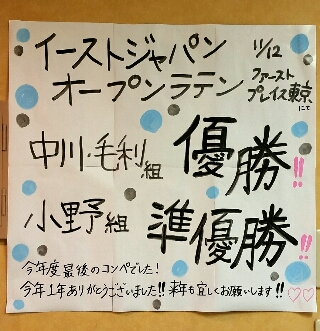 イーストジャパン
オープンラテン
11/12
ファースト
プレイス東京
にて
中川・毛利組
優勝!!
小野組
準優勝!!
今年度最後のコンペでした!
今年1年ありがとうございました!!来年も宜しくお願いします!!♡♡